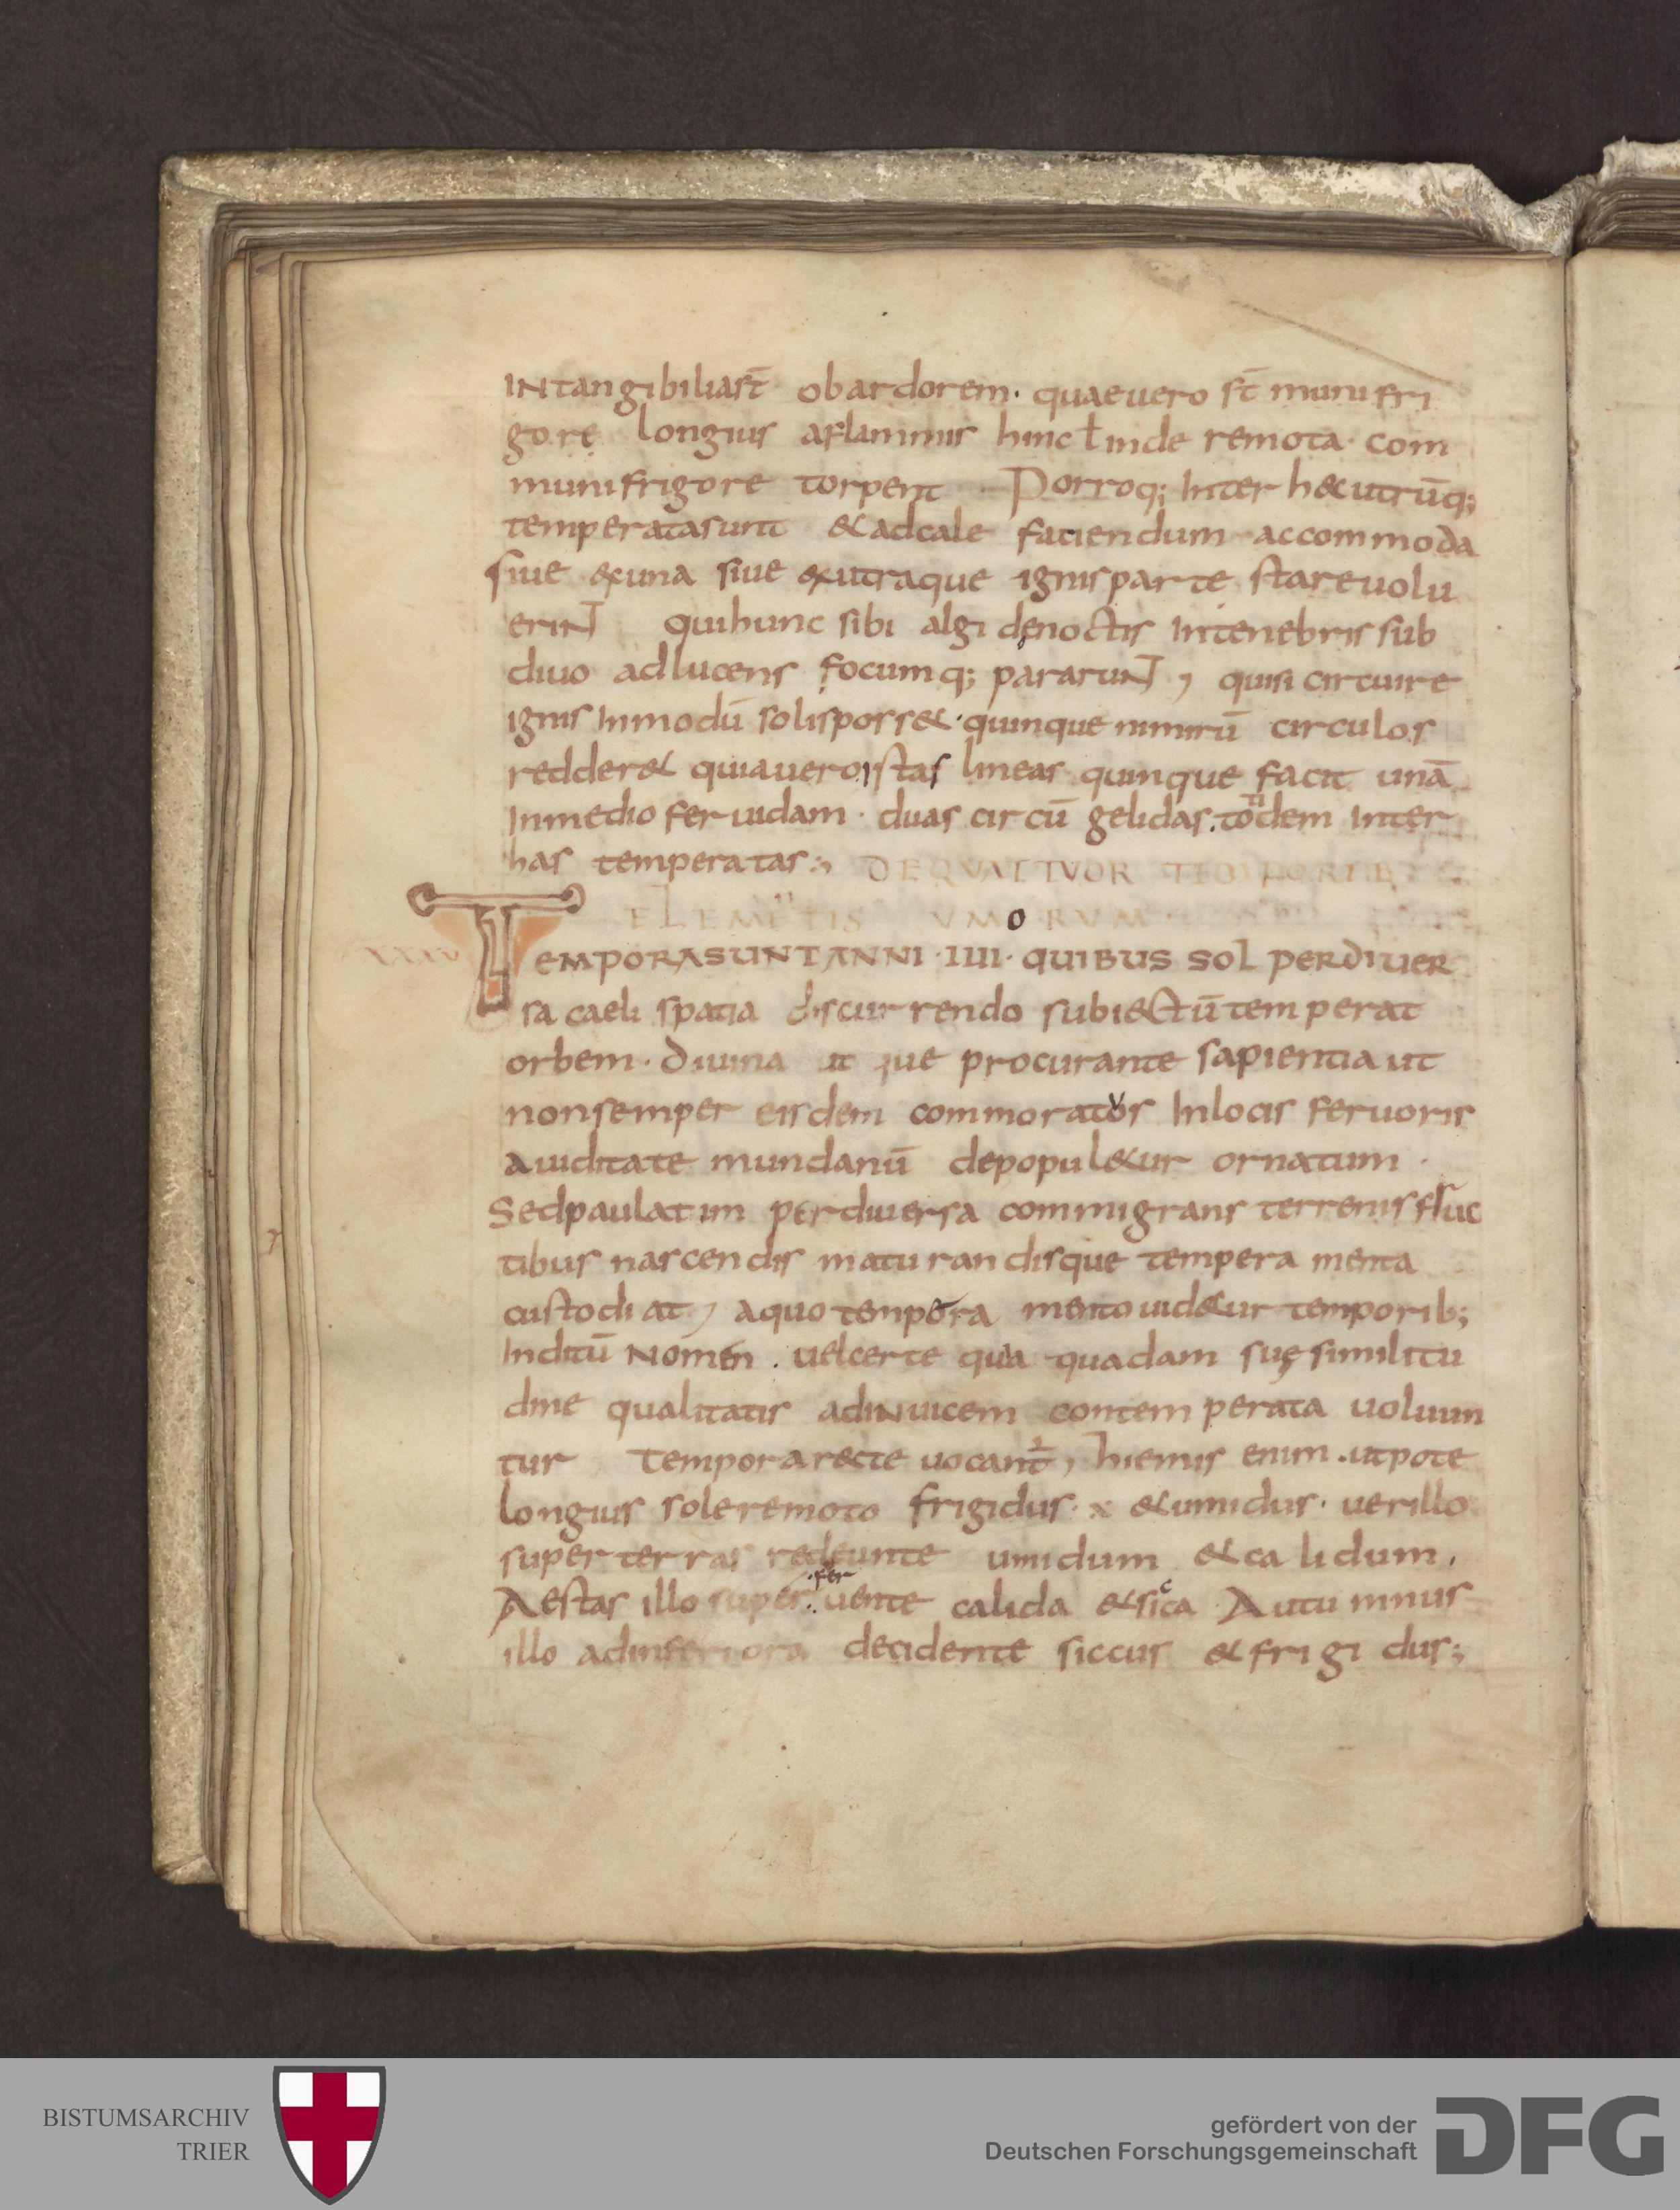 INtangibiliast̄ ob ardorem· quae uero st̄ muni fri
gorę longius a flammis hinc ł inde remota· com
muni frigore torpent Porroq; Inter h&c utrūq;
temperata sunt & ad cale faciendum accommoda
siue ex una siue ex utraque ignis parte stare uolu
eriNT qui hunc sibi algi de noctis In tenebris sub
diuo adlucens focumq; pararuNT, qui si circuire
ignis In modū solis poss&· quinque nimirū circulos
redder& quia uero istas lineas quinque facit unā
In medio feruidam· duas circū gelidas· totidem Inter
has temperatas:, DE QVATTVOR TEMPORIB
ELEMENTIS VMORVM
XXXV
TEMPORA SUNT ANNI ·IIII· QUIBUS SOL PERDIUER
sa caeli spatia discurrendo subiectū temperat
orbem· Diuina procurante sapientia ut
non semper eisdem commoratvos In locis feruoris
auiditate mundanū depopul&ur ornatum·
Sed paulatim per diuersa commigrans terrenis fluc
tibus nascendis maturandisque temperamenta
custodiat, a quo temperamento uid&ur temporib;
Inditū Nomen· uel certe quia quadam suę similitu
dine qualitatis adiNuicem contemperata uoluun
tur Tempora recte uocant̄, hiemis enim· utpote
longius sole remoto frigidus· x & umidus· uer illo
super terras redeunte umidum & calidum,
Aestas illo super·feruente calida & sicca Autumnus
illo ad inferiora decidente siccus & frigidus;
BISTUMSARCHIV
TRIER
gefördert von der
Deutschen Forschungsgemeinschaft
DFG